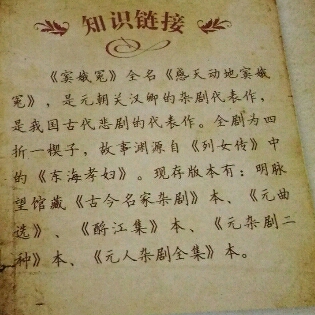 知识链接
《窦娥冤》全名《感天动地窦娥
冤》，是元朝关汉卿的杂剧代表作，
是我国古代悲剧的代表作。全剧为四
折一楔子，故事渊源自《列女传》中
的《东海孝妇》。现存版本有：明脉
望馆藏《古今名家杂剧》本、《元曲
选》、《酹江集》本、《元杂剧二
种》本、《元人杂剧全集》本。